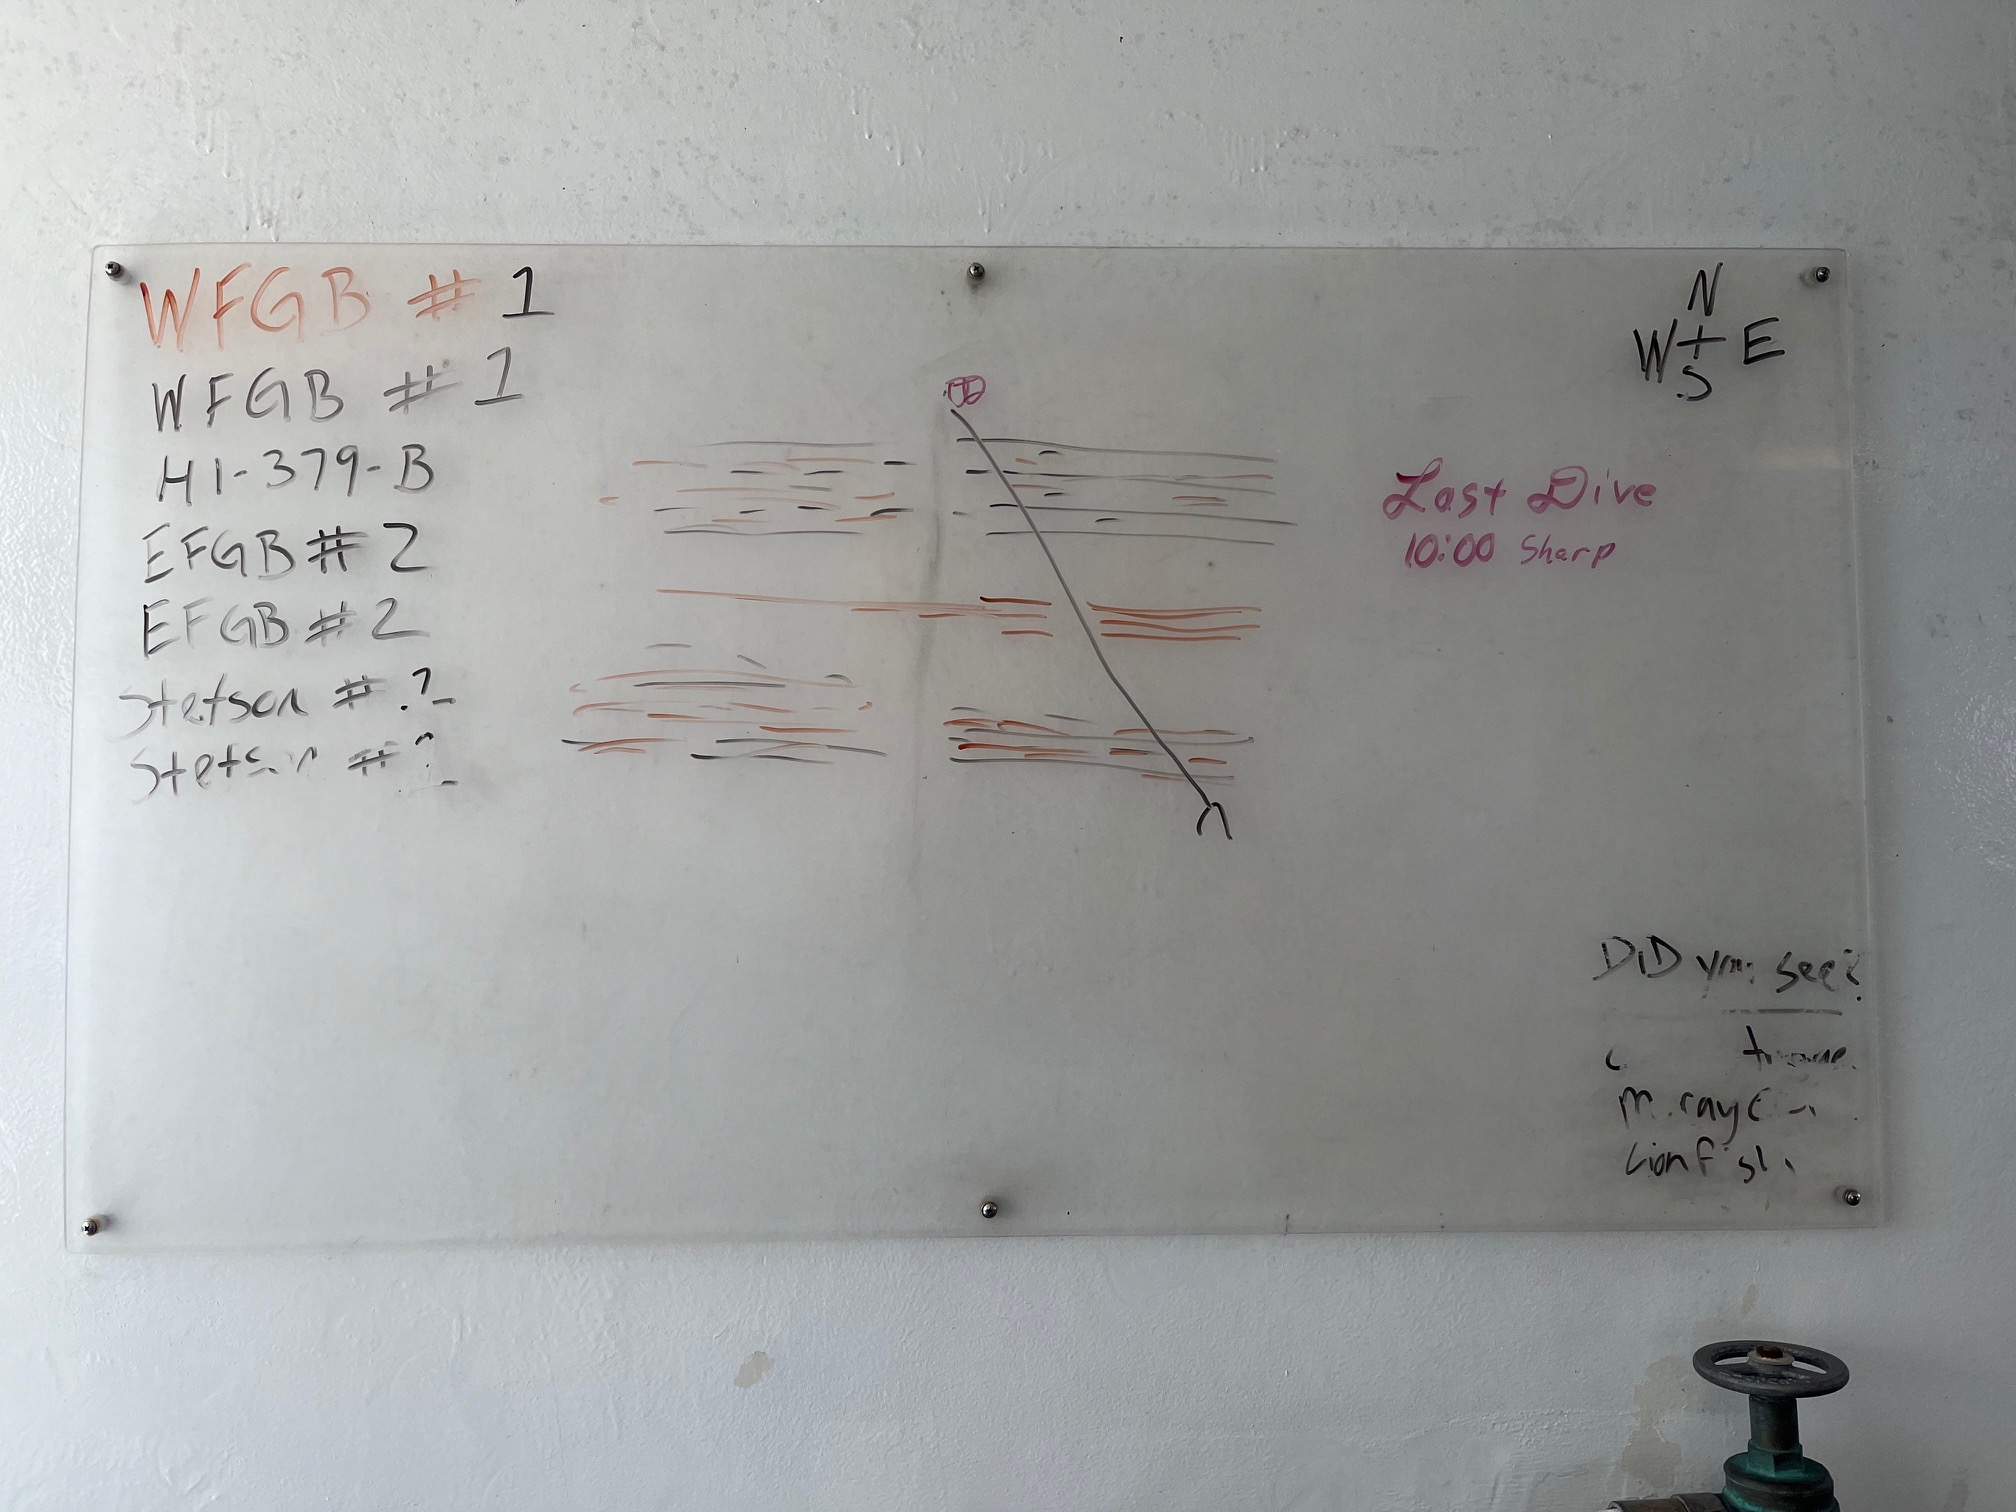 WFGB # 1
WFGB # 1
HI-379-B
EFGB # 2
EFGB # 2
Stetson # ?
Stetson #
N
W E
S
Last Dive
10:00 Sharp
DiD you see?
Lionfish